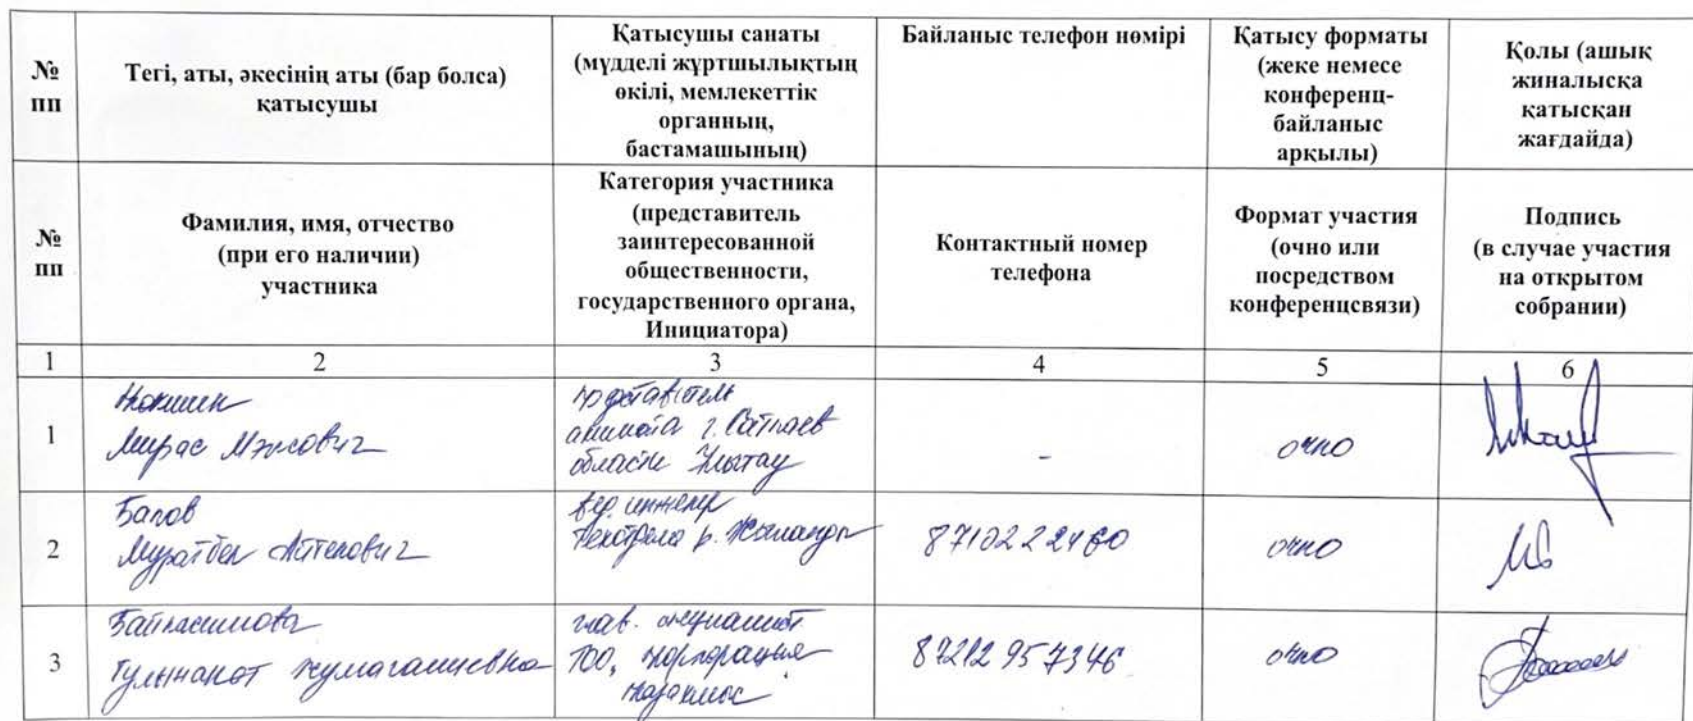 № пп
Тегі, аты, әкесінің аты (бар болса)
қатысушы
Қатысушы санаты
(мүдделі жұртшылықтың
өкілі, мемлекеттік
органның,
бастамашының)
Байланыс телефон нөмірі
Қатысу форматы
(жеке немесе
конференц-
байланыс
арқылы)
Қолы (ашық
жиналысқа
қатысқан
жағдайда)
№ пп
Фамилия, имя, отчество
(при его наличии)
участника
Категория участника
(представитель
заинтересованной
общественности,
государственного органа,
Инициатора)
Контактный номер
телефона
Формат участия
(очно или
посредством
конференцсвязи)
Подпись
(в случае участия
на открытом
собрании)
1
2
3
4
5
6
1
Мирас
акимата г. Сатпаев
области Улытау
-
очно
2
Балов
Муратбек
вед. инженер
техотдела р. Жыланды
очно
3
Байкасимова
глав. специалист
ТОО, корпорация
Казахмыс
87212 957346
очно